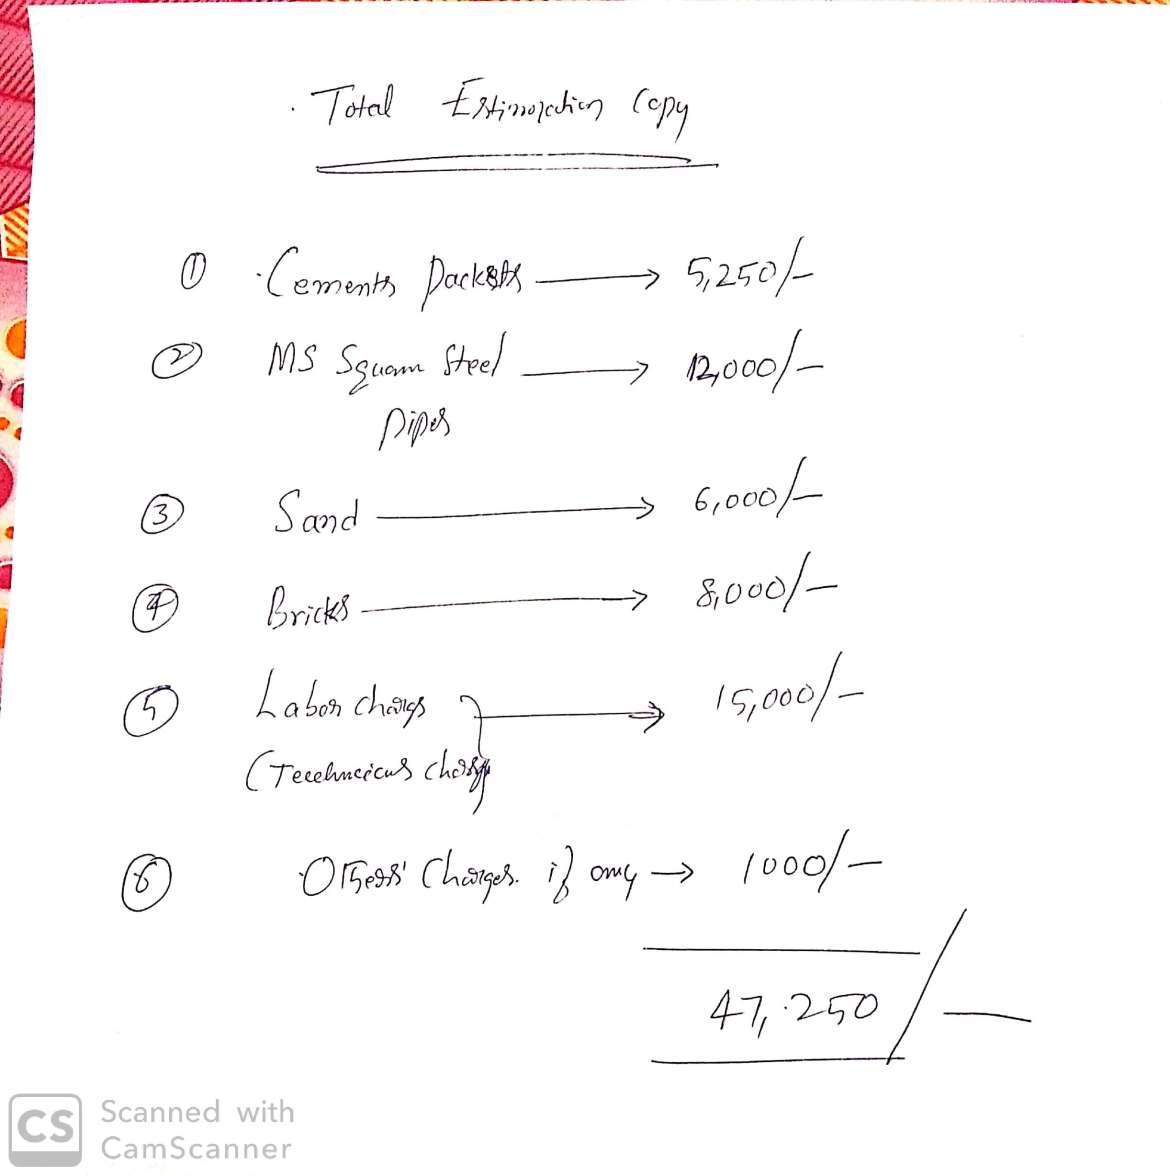 Total Estimation Copy
① Cements Packets → 5,250/-
② MS Square Steel → 12,000/-
Pipes
③ Sand → 6,000/-
④ Bricks → 8,000/-
⑤ Labor charges → 15,000/-
(Technicius charge
⑥ Others' Charges. if any → 1000/-
47,250/-
CS Scanned with
CamScanner